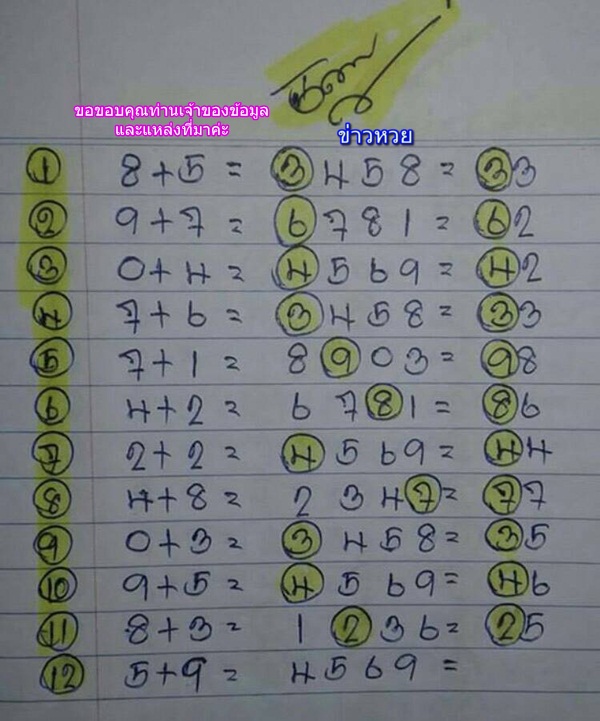 ขอขอบคุณท่านเจ้าของข้อมูล
และแหล่งที่มาค่ะ
ข่าวหวย
1 8+5 = 3 4 5 8 = 33
2 9+7 = 6 7 8 1 = 62
3 0+4 = 4 5 6 9 = 42
4 7+6 = 3 4 5 8 = 33
5 7+1 = 8 9 0 3 = 98
6 4+2 = 6 7 8 1 = 86
7 2+2 = 4 5 6 9 = 44
8 4+8 = 2 3 4 7 = 77
9 0+3 = 3 4 5 8 = 35
10 9+5 = 4 5 6 9 = 46
11 8+3 = 1 2 3 6 = 25
12 5+9 = 4 5 6 9 =